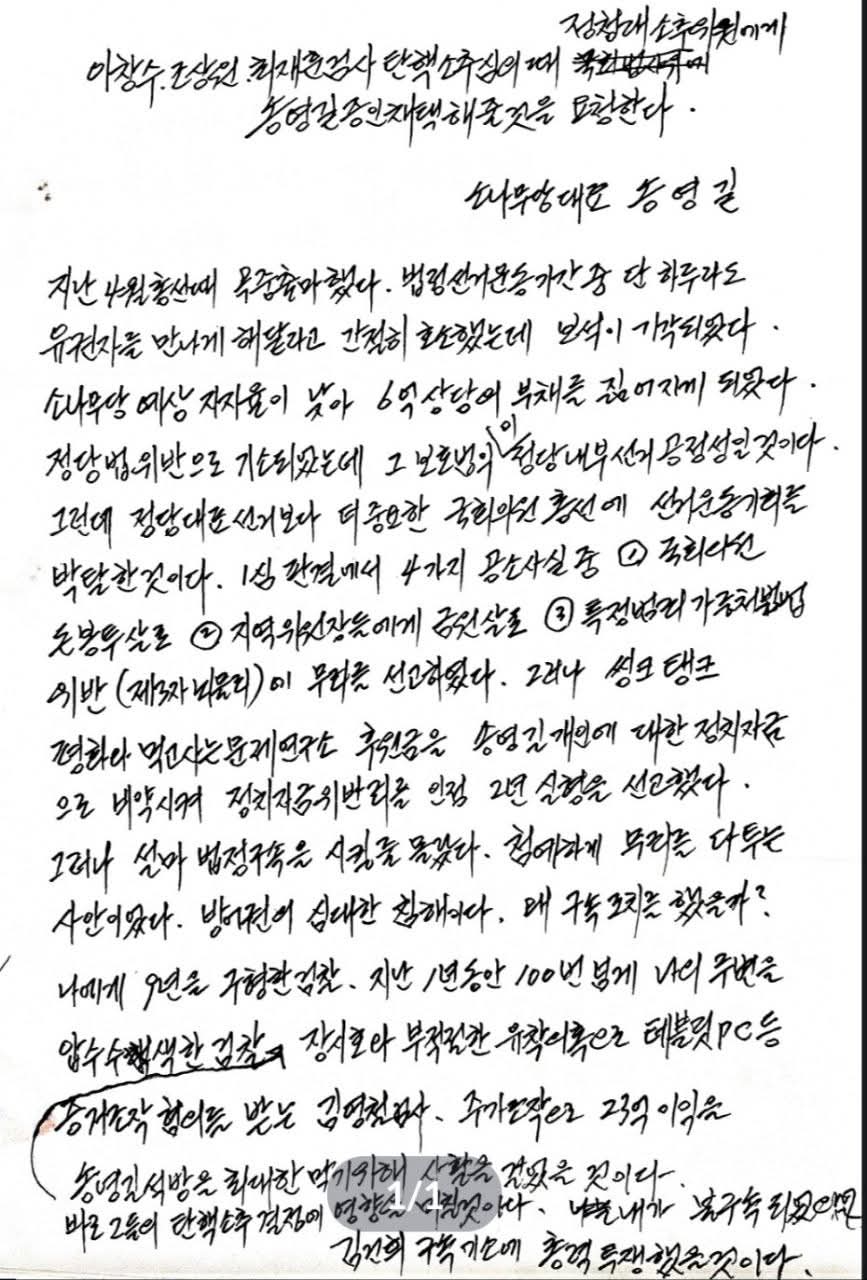 정청래 소추위원에게
이창수. 조상원. 최재훈검사 탄핵소추심의 때 국회법사위에
송영길증인채택해줄것을 요청한다.
소나무당대표 송영길
지난 4월총선때 옥중출마했다. 법정선거운동기간 중 단 하루라도
유권자를 만나게 해달라고 간절히 호소했는데 보석이 기각되었다.
소나무당 예상 지지율이 낮아 6억상당의 부채를 짊어지게 되었다.
정당법위반으로 기소되었는데 그 보호법익이 정당내부선거 공정성일 것이다.
그런데 정당대표선거보다 더 중요한 국회의원 총선에 선거운동기회를
박탈한것이다. 1심 판결에서 4가지 공소사실 중 ① 국회의원
돈봉투살포 ② 지역위원장들에게 금원살포 ③ 특정범죄가중처벌법
위반 (제3자뇌물죄)이 무죄를 선고하였다. 그러나 씽크탱크
평화와 먹고사는문제연구소 후원금을 송영길개인에 대한 정치자금
으로 비약시켜 정치자금위반죄를 인정 2년 실형을 선고했다.
그러나 설마 법정구속을 시킬줄 몰랐다. 첨예하게 무죄를 다투는
사안이었다. 방어권의 심대한 침해이다. 왜 구속조치를 했을까?
나에게 9년을 구형한검찰. 지난 1년동안 100번 넘게 나의 주변을
압수수색한 검찰. 장시호와 부적절한 유착의혹으로 테블릿PC등
증거조작 혐의를 받는 김영철검사. 주가조작으로 23억 이익을
송영길석방을 최대한 막기위해 사활을 걸었을 것이다.
바로 그들의 탄핵소추 결정에 영향을 미칠것이다. 내가 불구속 되었으면
김건희 구속기소에 총력투쟁했을것이다.
1/1